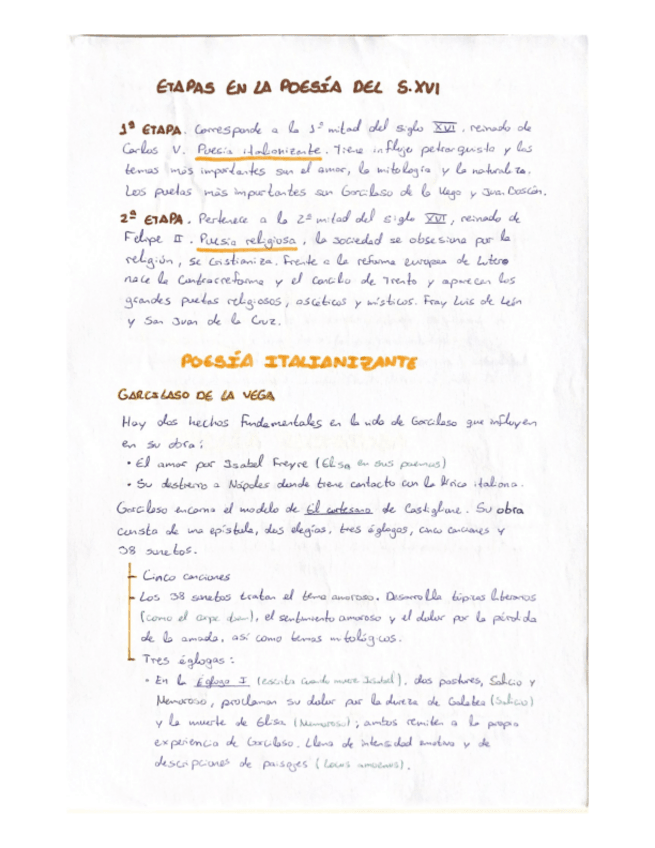 ETAPAS EN LA POESÍA DEL S.XVI
1ª ETAPA. Corresponde a la 1ª mitad del siglo XVI, reinado de
Carlos V. Poesía italianizante. Tiene influjo petrarquista y los
temas más importantes son el amor, la mitología y la naturaleza.
Los poetas más importantes son Garcilaso de la Vega y Juan Boscán.
2ª ETAPA. Pertenece a la 2ª mitad del siglo XVI, reinado de
Felipe II. Poesía religiosa, la sociedad se obsesiona por la
religión, se cristianiza. Frente a la reforma europea de Lutero
nace la Contrarreforma y el concilio de Trento y aparecen los
grandes poetas religiosos, ascéticos y místicos. Fray Luis de León
y San Juan de la Cruz.
POESÍA ITALIANIZANTE
GARCILASO DE LA VEGA
Hay dos hechos fundamentales en la vida de Garcilaso que influyen
en su obra:
• El amor por Isabel Freyre (Elisa en sus poemas)
• Su destierro a Nápoles donde tiene contacto con la lírica italiana.
Garcilaso encarna el modelo de El cortesano de Castiglione. Su obra
consta de una epístola, dos elegías, tres églogas, cinco canciones y
38 sonetos.
- Cinco canciones
- Los 38 sonetos tratan el tema amoroso. Desarrolla tópicos literarios
(como el carpe diem), el sentimiento amoroso y el dolor por la pérdida
de la amada, así como temas mitológicos.
- Tres églogas:
• En la Égloga I (escrita cuando muere Isabel), dos pastores, Salicio y
Nemoroso, proclaman su dolor por la dureza de Galatea (Salicio)
y la muerte de Elisa (Nemoroso); ambos remiten a la propia
experiencia de Garcilaso. Llena de intensidad emotiva y de
descripciones de paisajes (locus amoenus).